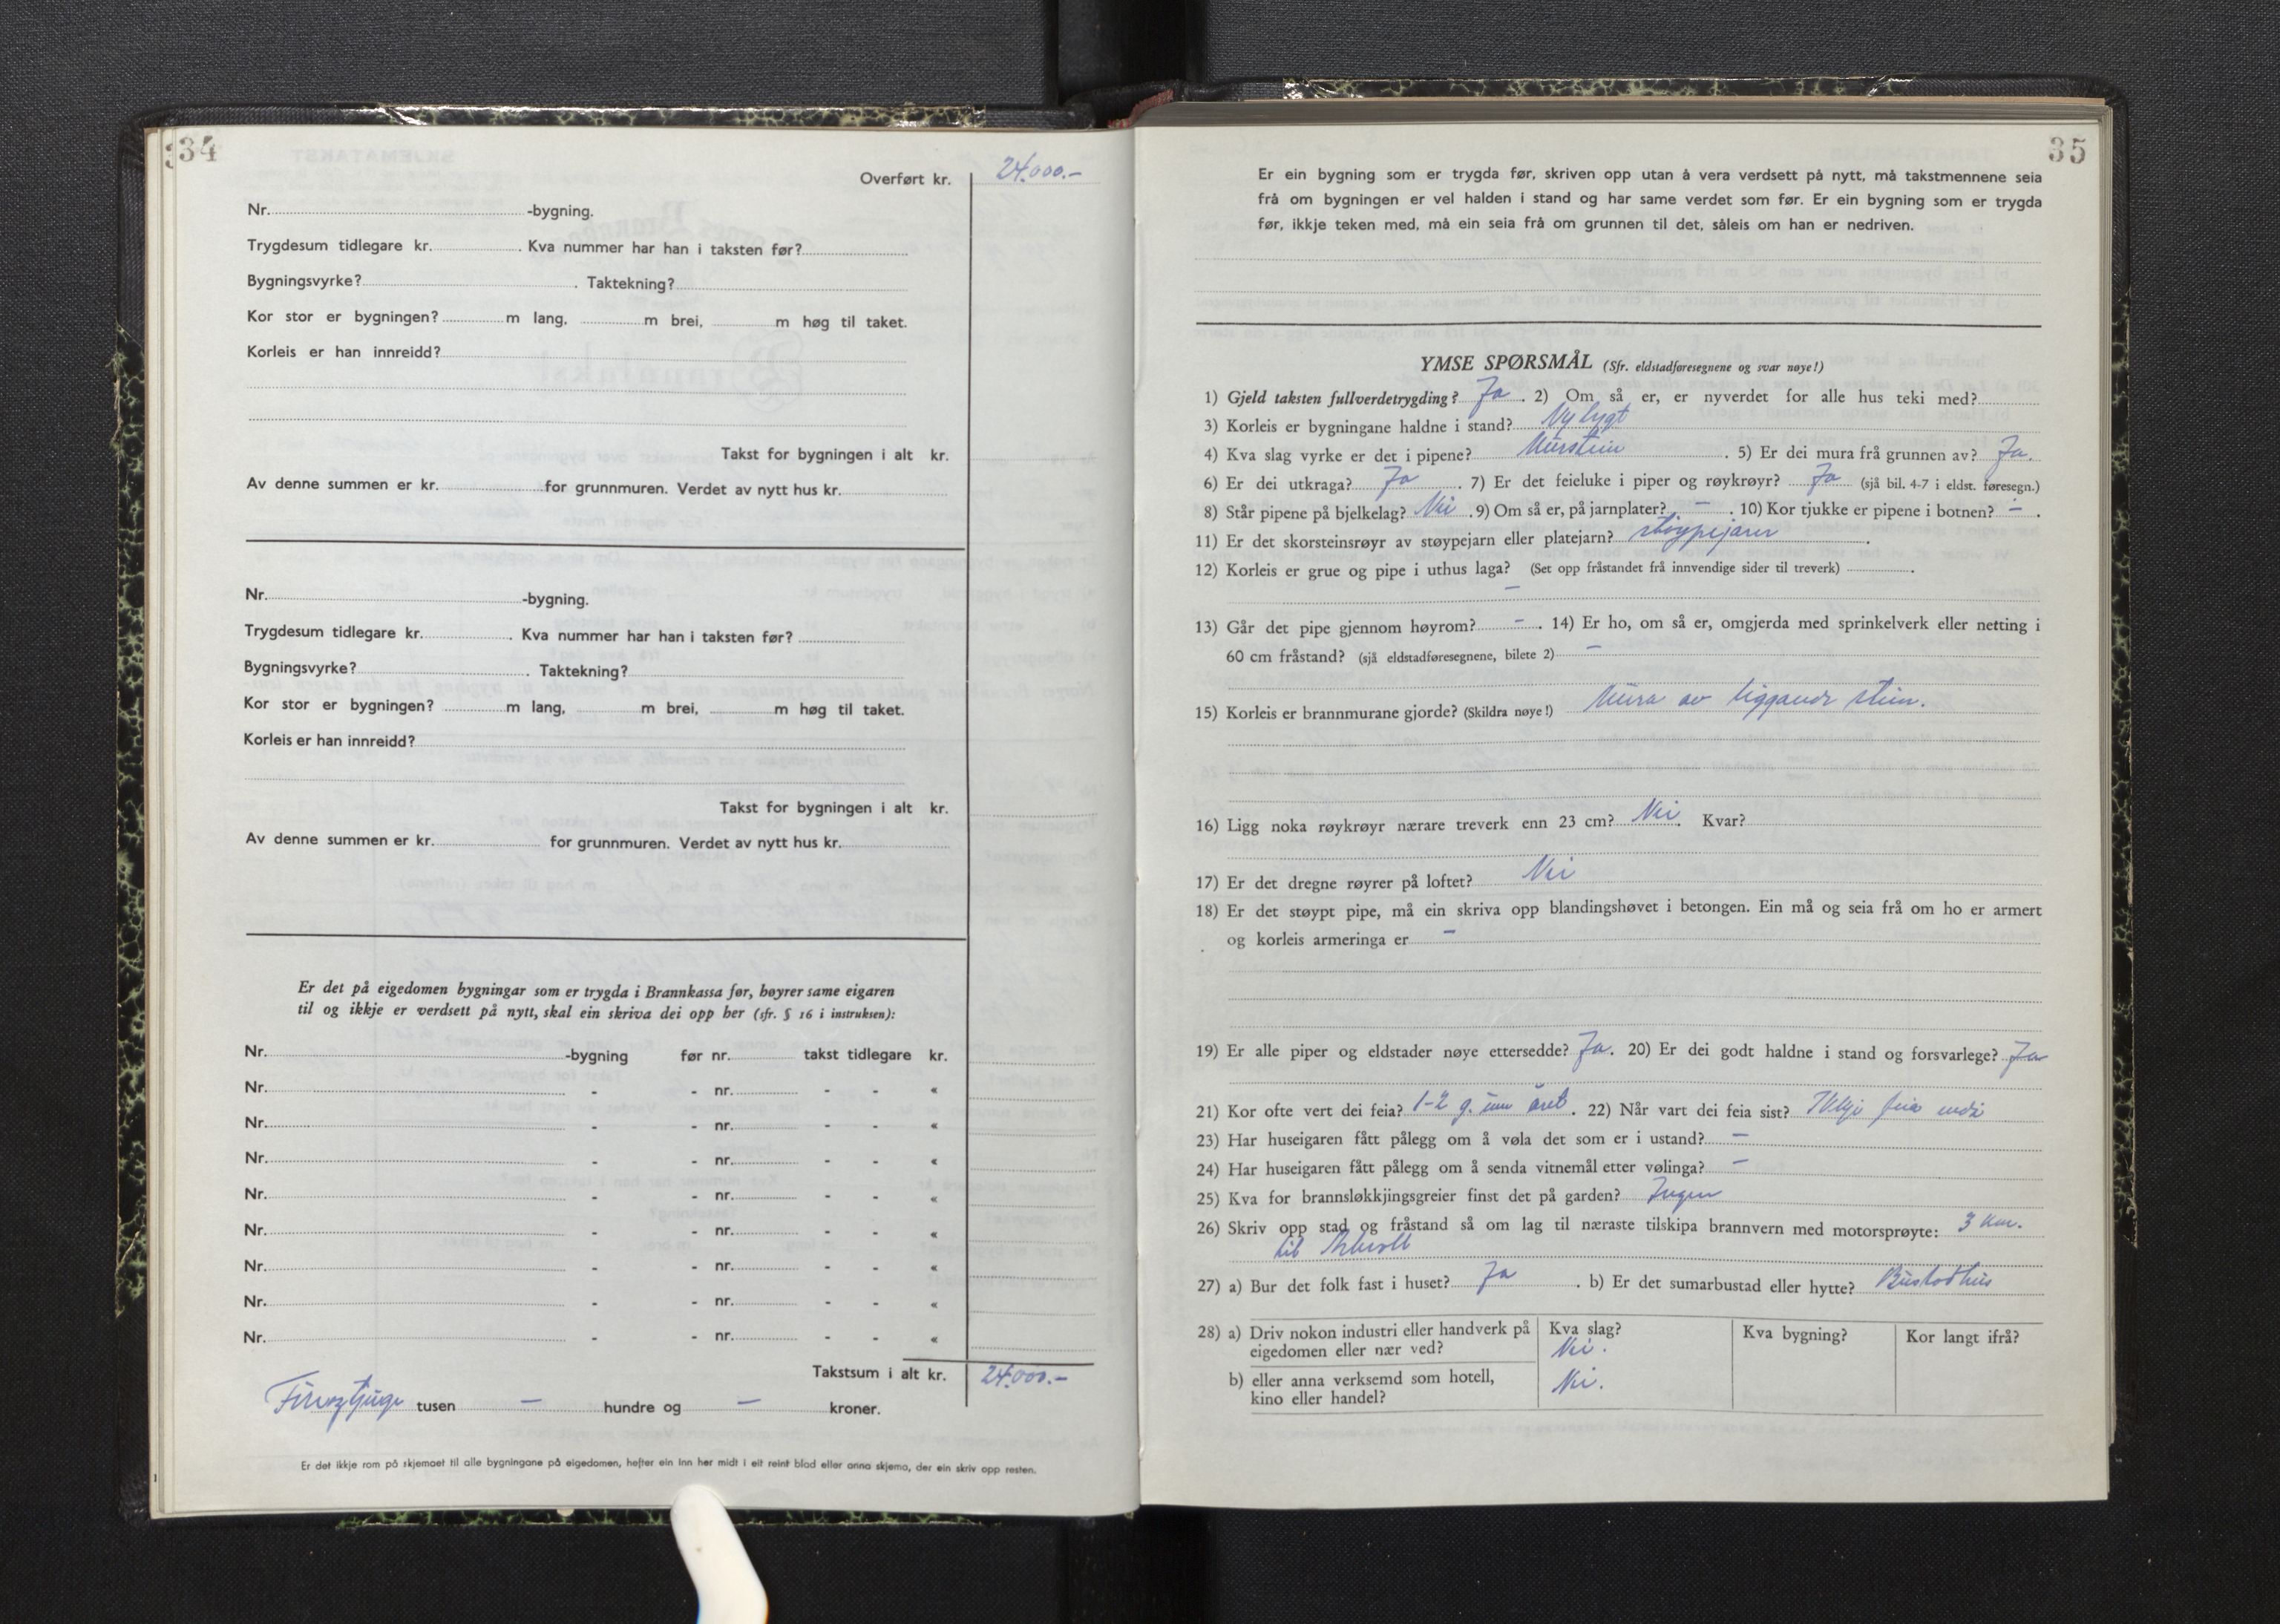 34
Overført kr. 24.000.-
Nr. -bygning.
Trygdesum tidlegare kr. . Kva nummer har han i taksten før?
Bygningsvyrke? . Taktekning?
Kor stor er bygningen? m lang, m brei, m høg til taket.
Korleis er han innreidd?
Takst for bygningen i alt kr.
Av denne summen er kr. for grunnmuren. Verdet av nytt hus kr.
Nr. -bygning.
Trygdesum tidlegare kr. . Kva nummer har han i taksten før?
Bygningsvyrke? . Taktekning?
Kor stor er bygningen? m lang, m brei, m høg til taket.
Korleis er han innreidd?
Takst for bygningen i alt kr.
Av denne summen er kr. for grunnmuren. Verdet av nytt hus kr.
Er det på eigedomen bygningar som er trygda i Brannkassa før, høyrer same eigaren
til og ikkje er verdsett på nytt, skal ein skriva dei opp her (sfr. § 16 i instruksen):
Nr. -bygning før nr. takst tidlegare kr.
Nr. - - nr. - - «
Nr. - - nr. - - «
Nr. - - nr. - - «
Nr. - - nr. - - «
Nr. - - nr. - - «
Nr. - - nr. - - «
Nr. - - nr. - - «
Nr. - - nr. - - «
Takstsum i alt kr. 24.000.-
tusen - hundre og - kroner.
Er det ikkje rom på skjemaet til alle bygningane på eigedomen, hefter ein inn her midt i eit reint blad eller anna skjema, der ein skriv opp resten.
35
Er ein bygning som er trygda før, skriven opp utan å vera verdsett på nytt, må takstmennene seia
frå om bygningen er vel halden i stand og har same verdet som før. Er ein bygning som er trygda
før, ikkje teken med, må ein seia frå om grunnen til det, såleis om han er nedriven.
YMSE SPØRSMÅL (Sfr. eldstadføresegnene og svar nøye!)
1) Gjeld taksten fullverdetrygding? Ja . 2) Om så er, er nyverdet for alle hus teki med?
3) Korleis er bygningane haldne i stand? Nybygt
4) Kva slag vyrke er det i pipene? Murstein . 5) Er dei mura frå grunnen av? Ja.
6) Er dei utkraga? Ja . 7) Er det feieluke i piper og røykrøyr? Ja (sjå bil. 4-7 i eldst. føresegn.)
8) Står pipene på bjelkelag? Nei . 9) Om så er, på jarnplater? - . 10) Kor tjukke er pipene i botnen? - .
11) Er det skorsteinsrøyr av støypejarn eller platejarn? støypejarn .
12) Korleis er grue og pipe i uthus laga? (Set opp fråstandet frå innvendige sider til treverk) .
-
13) Går det pipe gjennom høyrom? - . 14) Er ho, om så er, omgjerda med sprinkelverk eller netting i
60 cm fråstand? (sjå eldstadføresegnene, bilete 2) -
15) Korleis er brannmurane gjorde? (Skildra nøye!) Mura av liggande stein.
16) Ligg noka røykrøyr nærare treverk enn 23 cm? Nei. Kvar?
17) Er det dregne røyrer på loftet? Nei
18) Er det støypt pipe, må ein skriva opp blandingshøvet i betongen. Ein må og seia frå om ho er armert
og korleis armeringa er -
19) Er alle piper og eldstader nøye ettersedde? Ja. 20) Er dei godt haldne i stand og forsvarlege? Ja
21) Kor ofte vert dei feia? 1-2 g. um året . 22) Når vart dei feia sist? Ikkje feia endå
23) Har huseigaren fått pålegg om å vøla det som er i ustand? -
24) Har huseigaren fått pålegg om å senda vitnemål etter vølinga? -
25) Kva for brannsløkkjingsgreier finst det på garden? Ingen
26) Skriv opp stad og fråstand så om lag til næraste tilskipa brannvern med motorsprøyte: 3 km.
til
27) a) Bur det folk fast i huset? Ja . b) Er det sumarbustad eller hytte? Bustadhus
28) a) Driv nokon industri eller handverk på eigedomen eller nær ved? Kva slag? Nei. Kva bygning? Kor langt ifrå?
b) eller anna verksemd som hotell, kino eller handel? Nei.